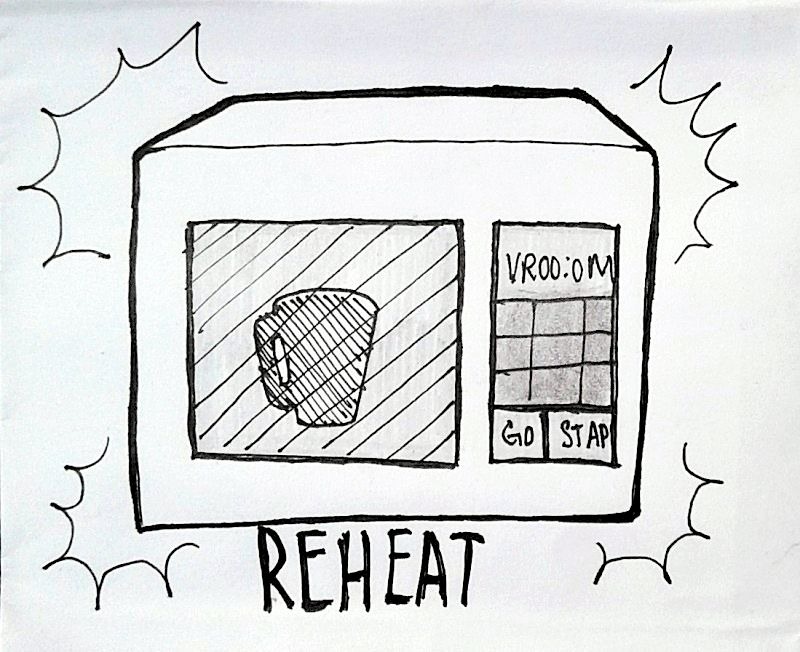 VROO:OM
GO STAP
REHEAT